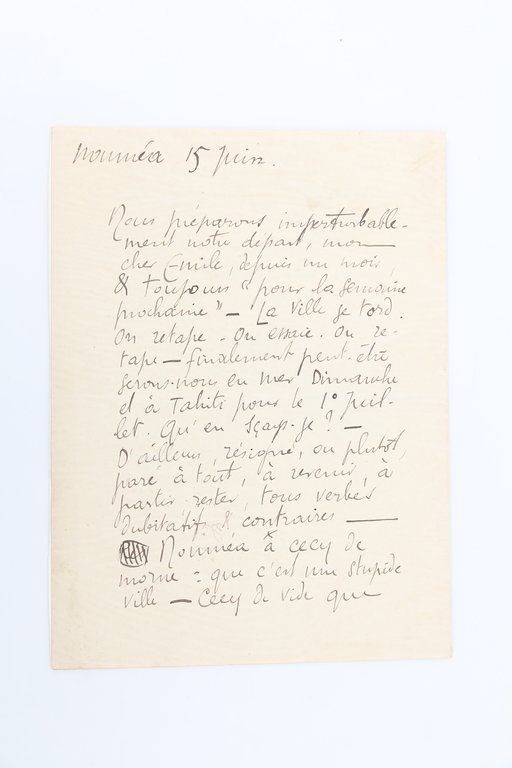 Nouméa 15 Juin.
Nous préparons imperturbable-
ment notre départ, mon
cher Emile, depuis un mois,
& toujours "pour la semaine
prochaine" — La Ville se tord.
On retape. On essaie. On re-
tape — finalement peut-être
serons-nous en mer Dimanche
et à Tahiti pour le 1° Juil-
let. Qu'en sçays-je ? —
D'ailleurs, résigné, ou plutôt,
paré à tout, à revenir, à
partir, rester, tous verbes
dubitatifs & contraires —
Nouméa a cecy de
morne = que c'est une stupide
ville — Cecy de vide que